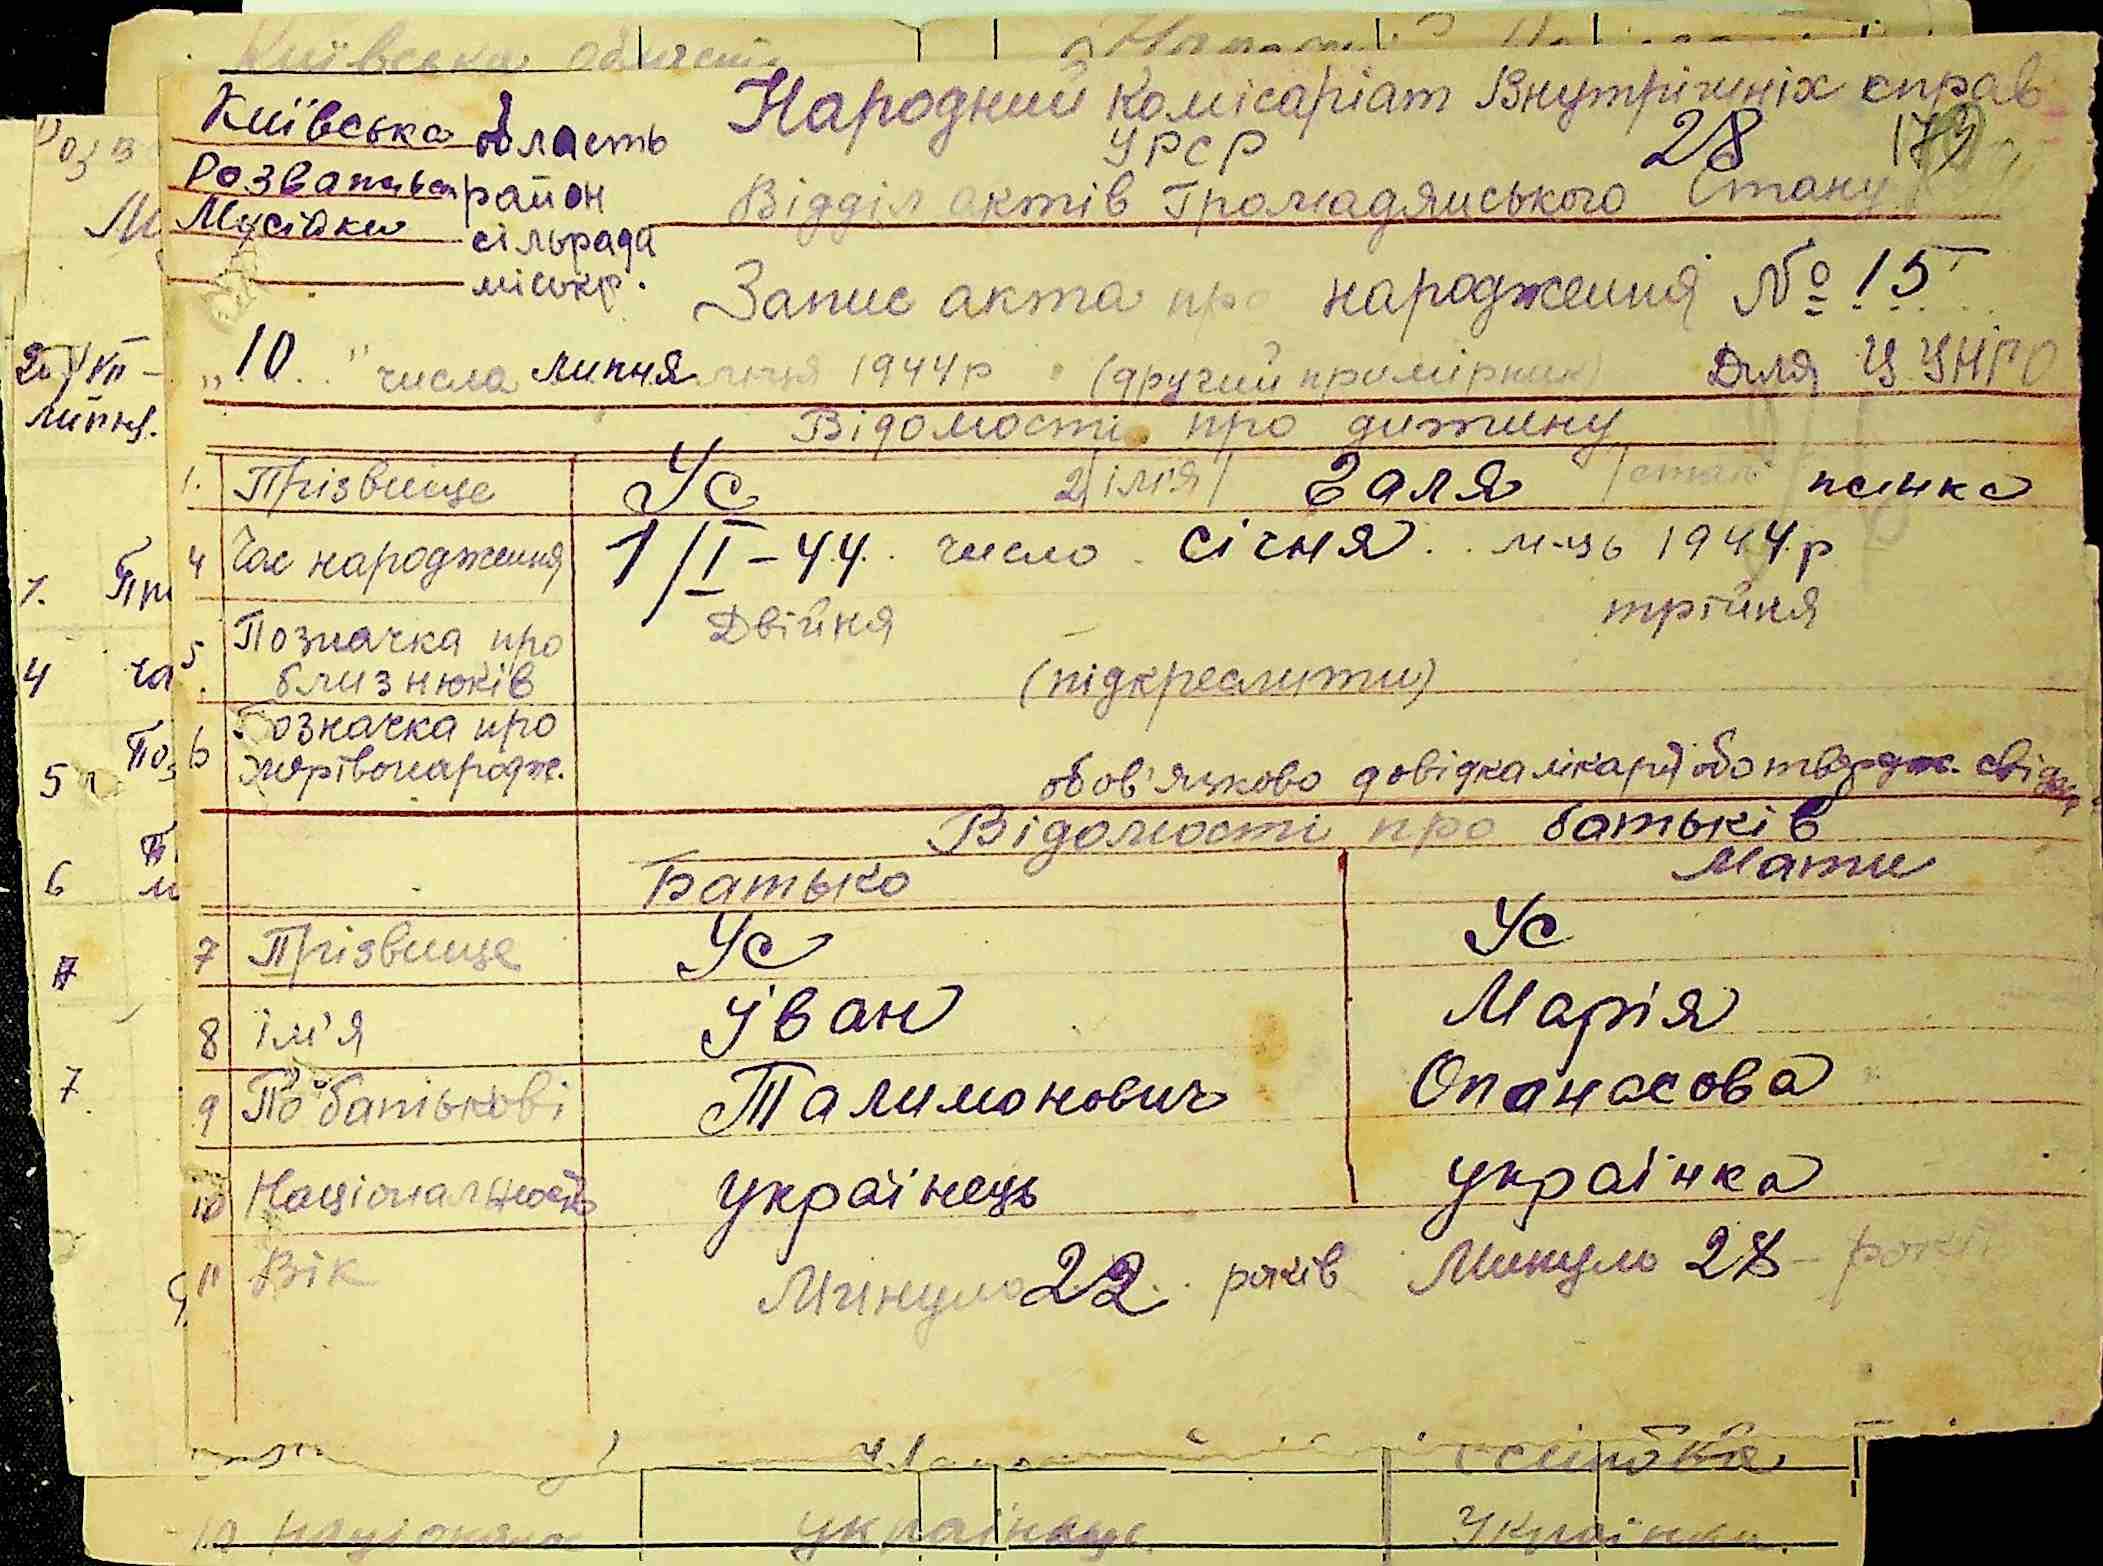 Київська область
Народний Комісаріат Внутрішніх справ
УРСР
28
Розважівськ район
Відділ актів Громадянського Стану
Мусійки сільрада
міськр.
Запис акта про народження № 15
"10" числа липня м-ця 1944 р. (другий примірник) Для ЦУНГО
Відомості про дитину
1. Прізвище Ус 2/ім'я/ Галя /стать панка
4 Час народження 1/I-44. число січня м-ць 1944 р
5. Позначка про близнюків Двійня трійня
(підкреслити)
6 Позначка про мертвонародж.
обов'язково довідка лікаря
Відомості про батьків
Батько Мати
7 Прізвище Ус Ус
8 ім'я Іван Марія
9 По батькові Талимонович Опанасова
10 Національність українець українка
11 Вік Минуло 22 років Минуло 28 - років
Київська область
Розв
25/VII-
липня.
1. Пр
4 ча
5 Поз
6
7
7
10 національ українець Українка